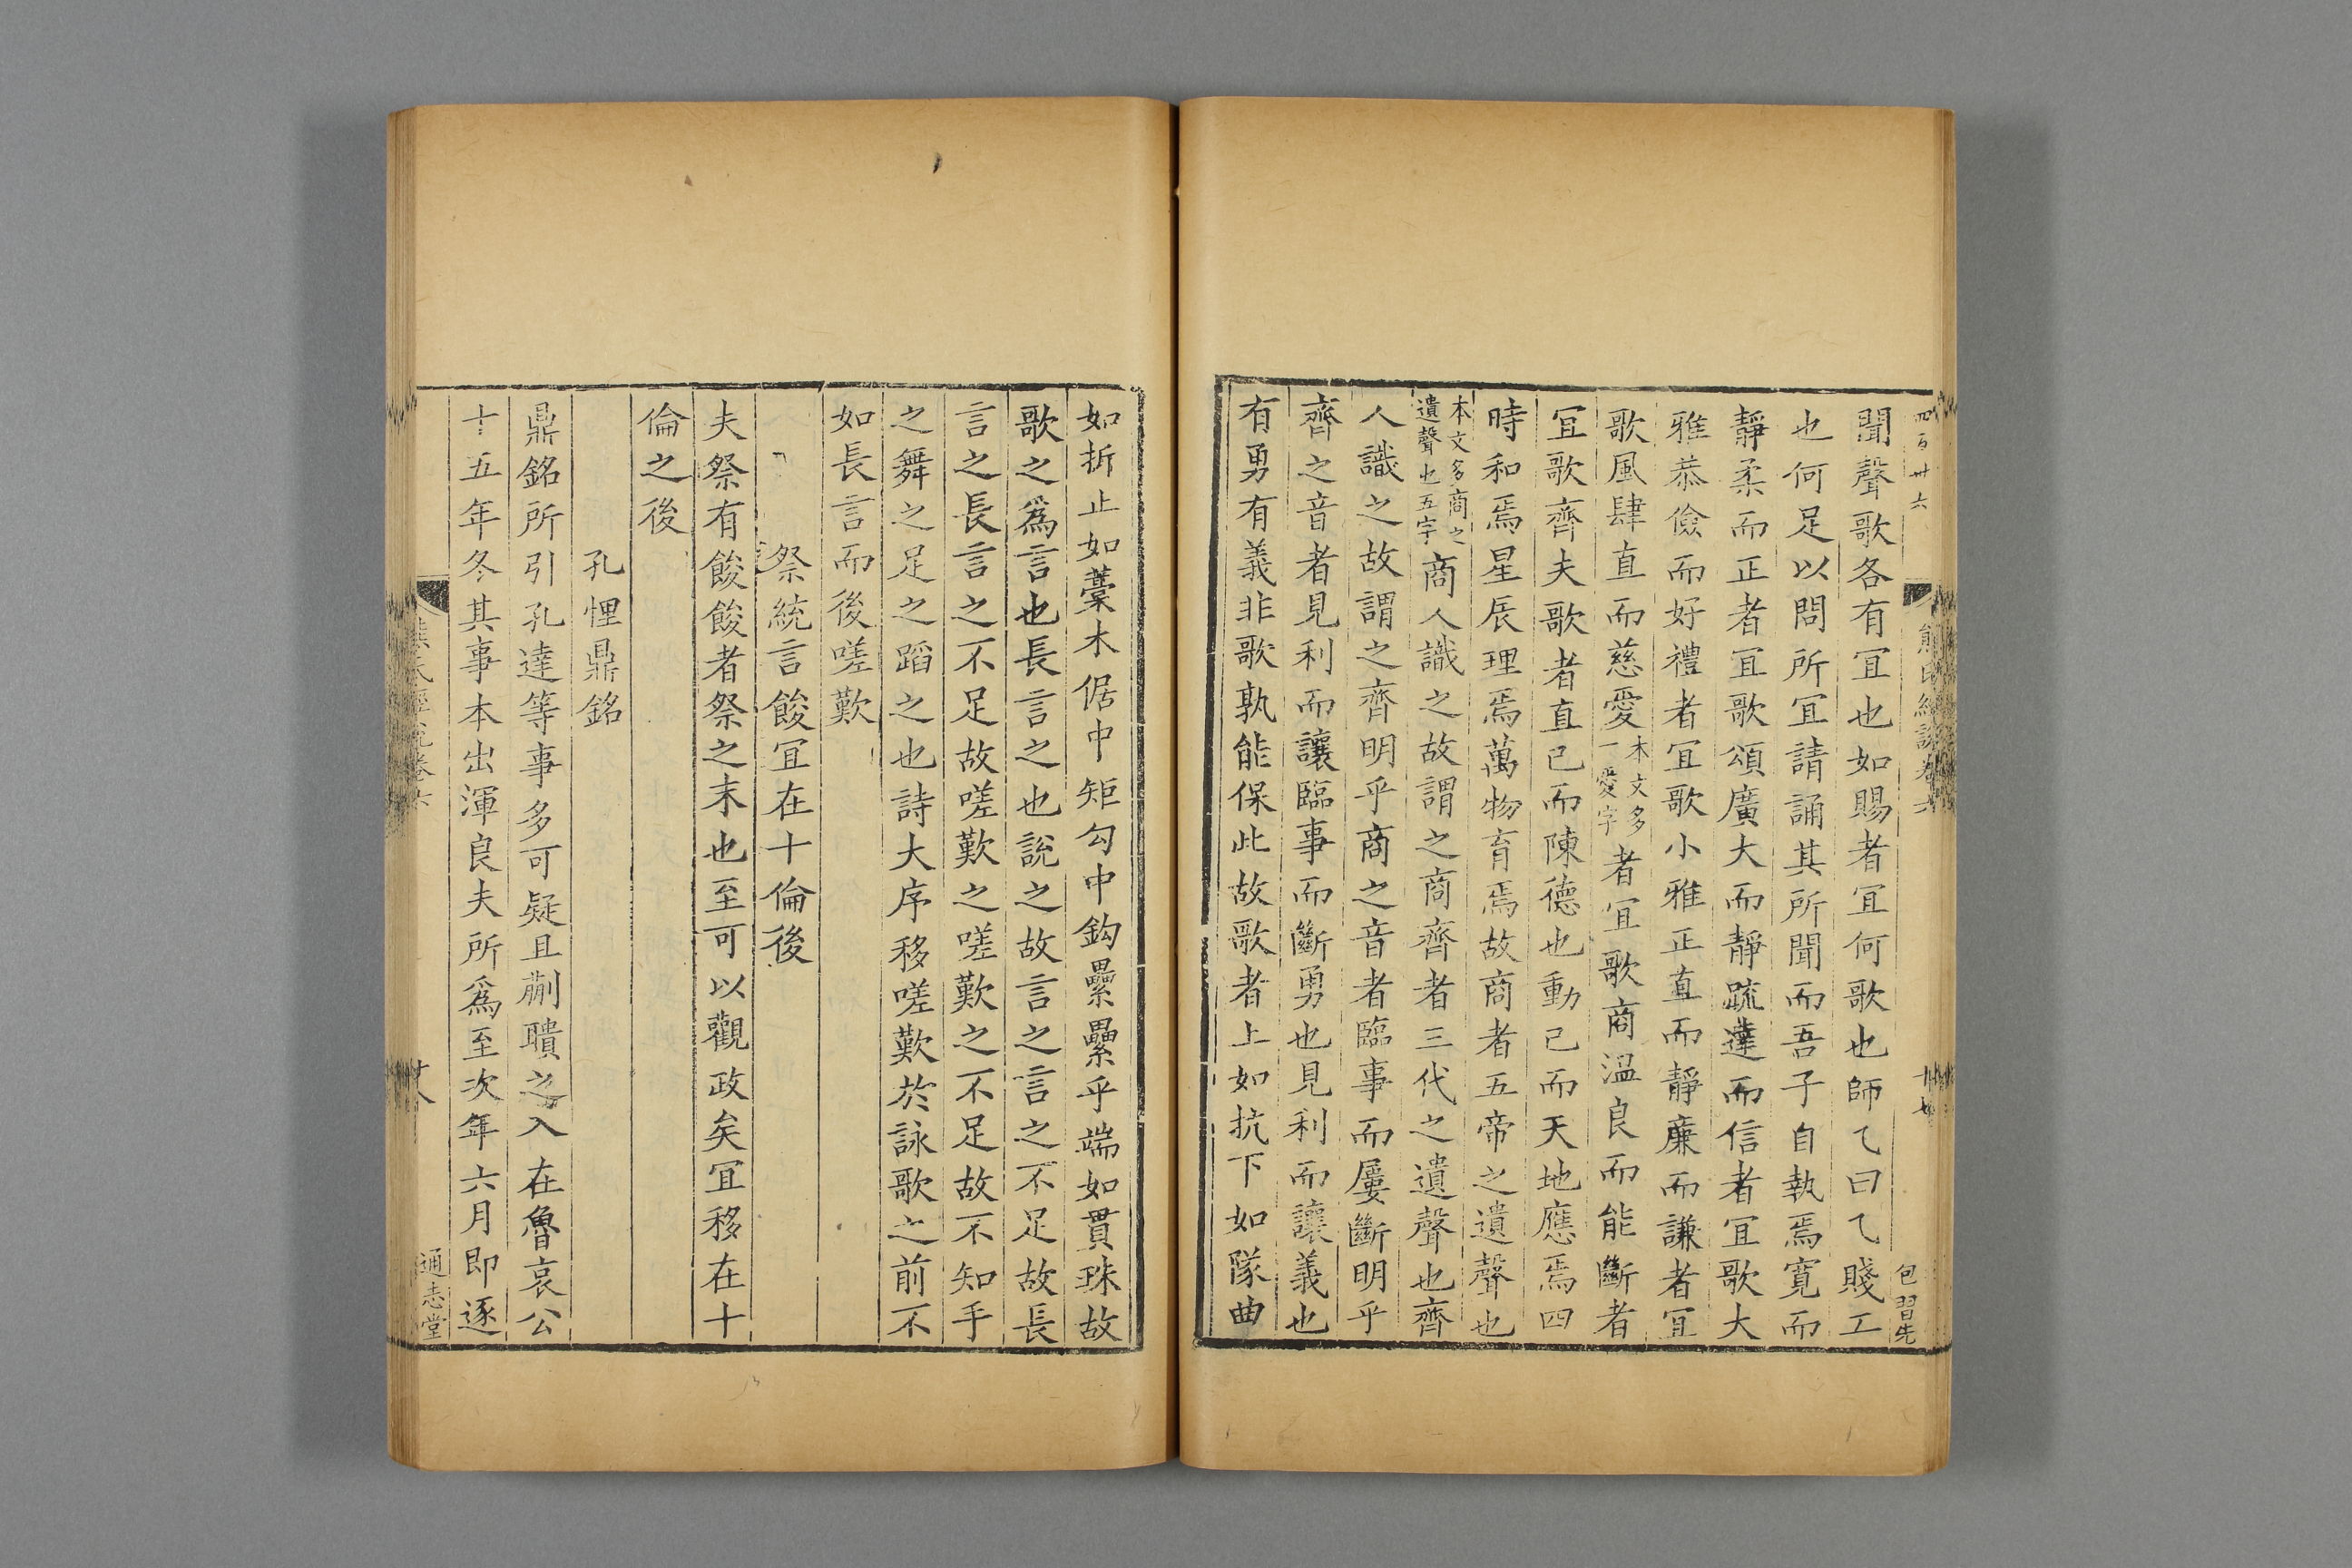 四百卅六
熊氏經說卷六
廿七
包習先
聞聲歌各有冝也如賜者冝何歌也師乙曰乙賤工
也何足以問所冝請誦其所聞而吾子自執焉寛而
靜柔而正者冝歌頌廣大而靜疏達而信者冝歌大
雅恭儉而好禮者冝歌小雅正直而靜廉而謙者冝
歌風肆直而慈愛本文多一愛字者冝歌商温良而能斷者
冝歌齊夫歌者直己而陳德也動己而天地應焉四
時和焉星辰理焉萬物育焉故商者五帝之遺聲也
本文多商之遺聲也五字商人識之故謂之商齊者三代之遺聲也齊
人識之故謂之齊明乎商之音者臨事而屢斷明乎
齊之音者見利而讓臨事而斷勇也見利而讓義也
有勇有義非歌孰能保此故歌者上如抗下如隊曲
如折止如藁木倨中矩勾中鈎纍纍乎端如貫珠故
歌之爲言也長言之也說之故言之言之不足故長
言之長言之不足故嗟歎之嗟歎之不足故不知手
之舞之足之蹈之也詩大序移嗟歎於詠歌之前不
如長言而後嗟歎
祭統言餕冝在十倫後
夫祭有餕餕者祭之末也至可以觀政矣冝移在十
倫之後
孔悝鼎銘
鼎銘所引孔達等事多可疑且蒯聵之入在魯哀公
十五年冬其事本出渾良夫所爲至次年六月即逐
熊氏經說卷六
廿八
通志堂